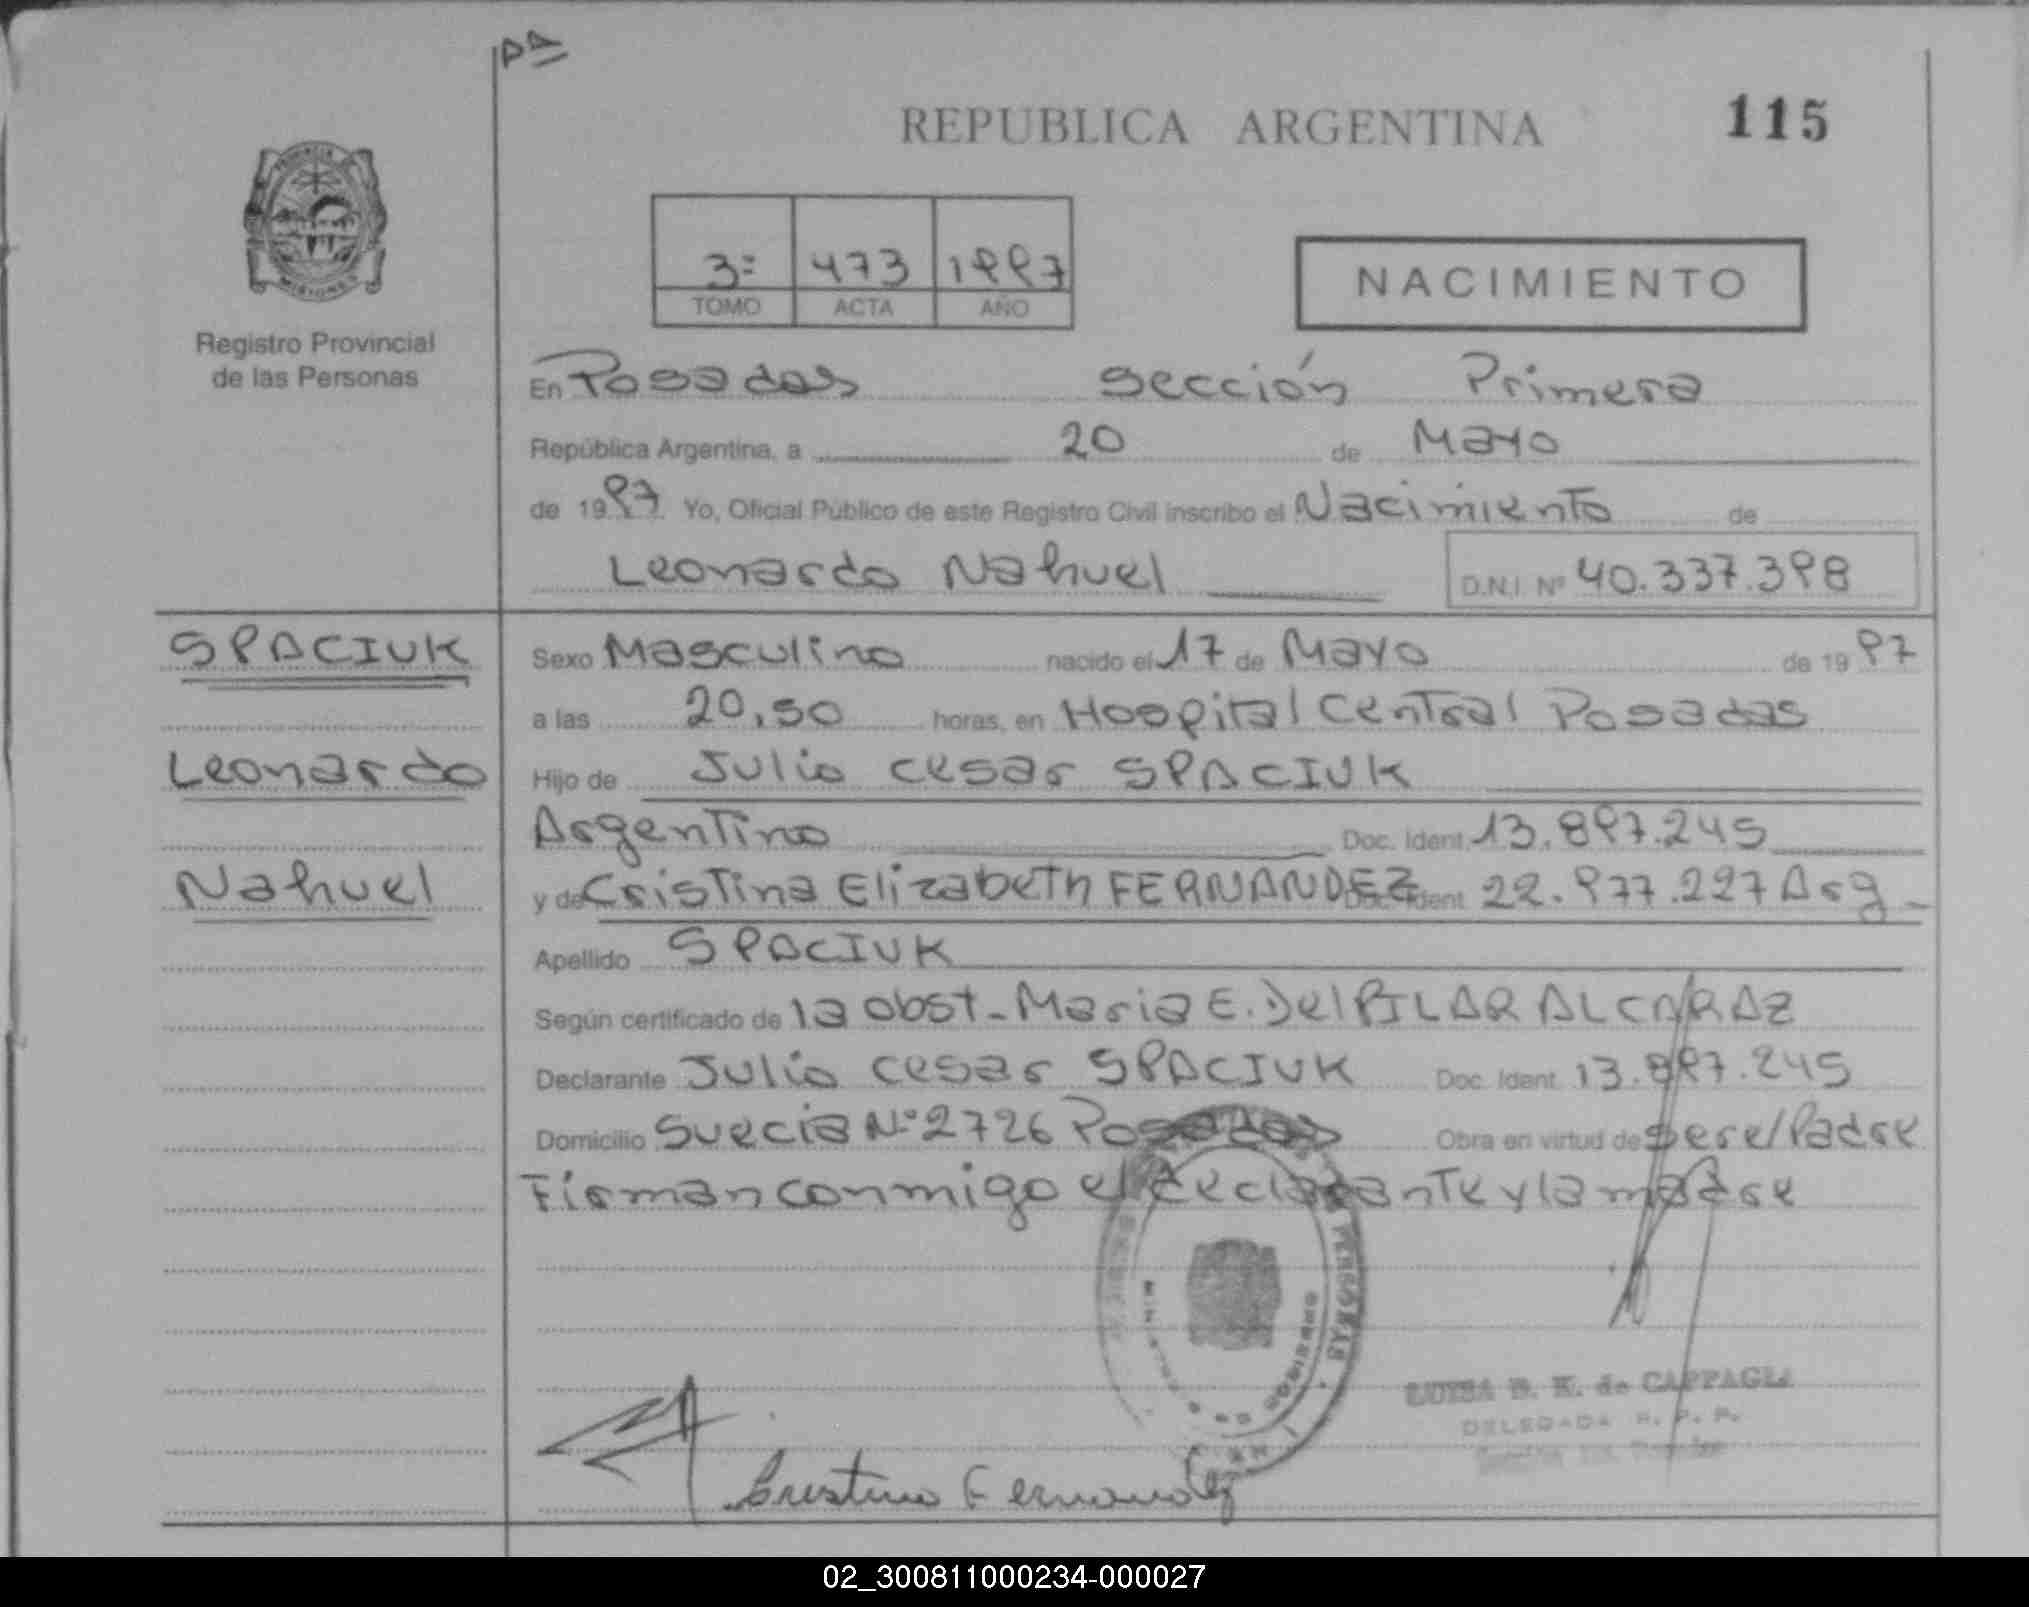 REPUBLICA ARGENTINA
115
PROVINCIA
MISIONES
Registro Provincial
de las Personas
3º 473 1997
TOMO ACTA AÑO
NACIMIENTO
En Posadas Sección Primera
República Argentina, a 20 de Mayo
de 1997 Yo, Oficial Público de este Registro Civil inscribo el Nacimiento de
Leonardo Nahuel D.N.I. Nº 40.337.398
SPACIUK
Leonardo
Nahuel
Sexo Masculino nacido el 17 de Mayo de 1997
a las 20,50 horas, en Hospital Central Posadas
Hijo de Julio Cesar SPACIUK
Argentino Doc. Ident. 13.897.245
y de Cristina Elizabeth FERNANDEZ Doc. Ident 22.977.227 Arg
Apellido SPACIUK
Según certificado de la obst. Maria E. Del PILAR ALCARAZ
Declarante Julio Cesar SPACIUK Doc. Ident. 13.897.245
Domicilio Suecia Nº 2726 Posadas Obra en virtud de Ser el Padre
Firman conmigo el declarante y la madre
PERSONAS
Cristina Fernandez
LUISA de CAPPAGLI
DELEGADA R. P. P.
02_300811000234-000027